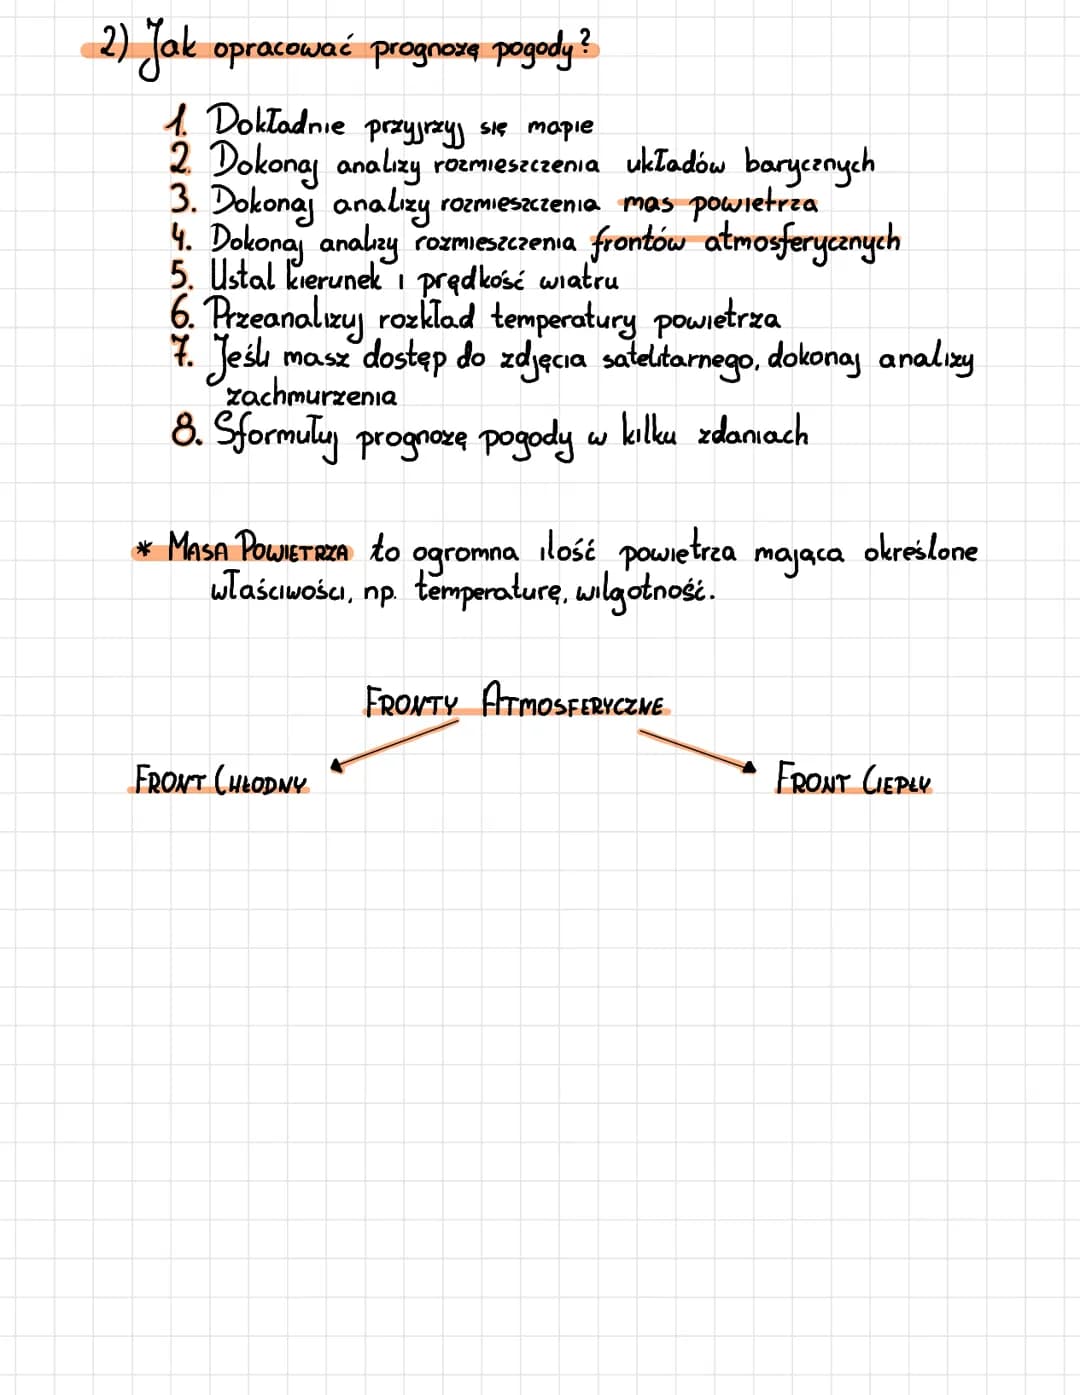 2) Jak opracować prognozę pogody?
1. Dokładnie przyjrzyj się mapie
2. Dokonaj analizy rozmieszczenia układów barycznych
3. Dokonaj analizy rozmieszczenia mas powietrza
4. Dokonaj analizy rozmieszczenia frontów atmosferycznych
5. Ustal kierunek i prędkość wiatru
6. Przeanalizuj rozkład temperatury powietrza
7. Jeśli masz dostęp do zdjęcia satelitarnego, dokonaj analizy
zachmurzenia
8. Sformułuj prognozę pogody w kilku zdaniach
* MASA POWIETRZA to ogromna ilość powietrza mająca określone
właściwości, np. temperaturę, wilgotność.
FRONTY ATMOSFERYCZNE
FRONT CHŁODNY
FRONT CIEPŁY